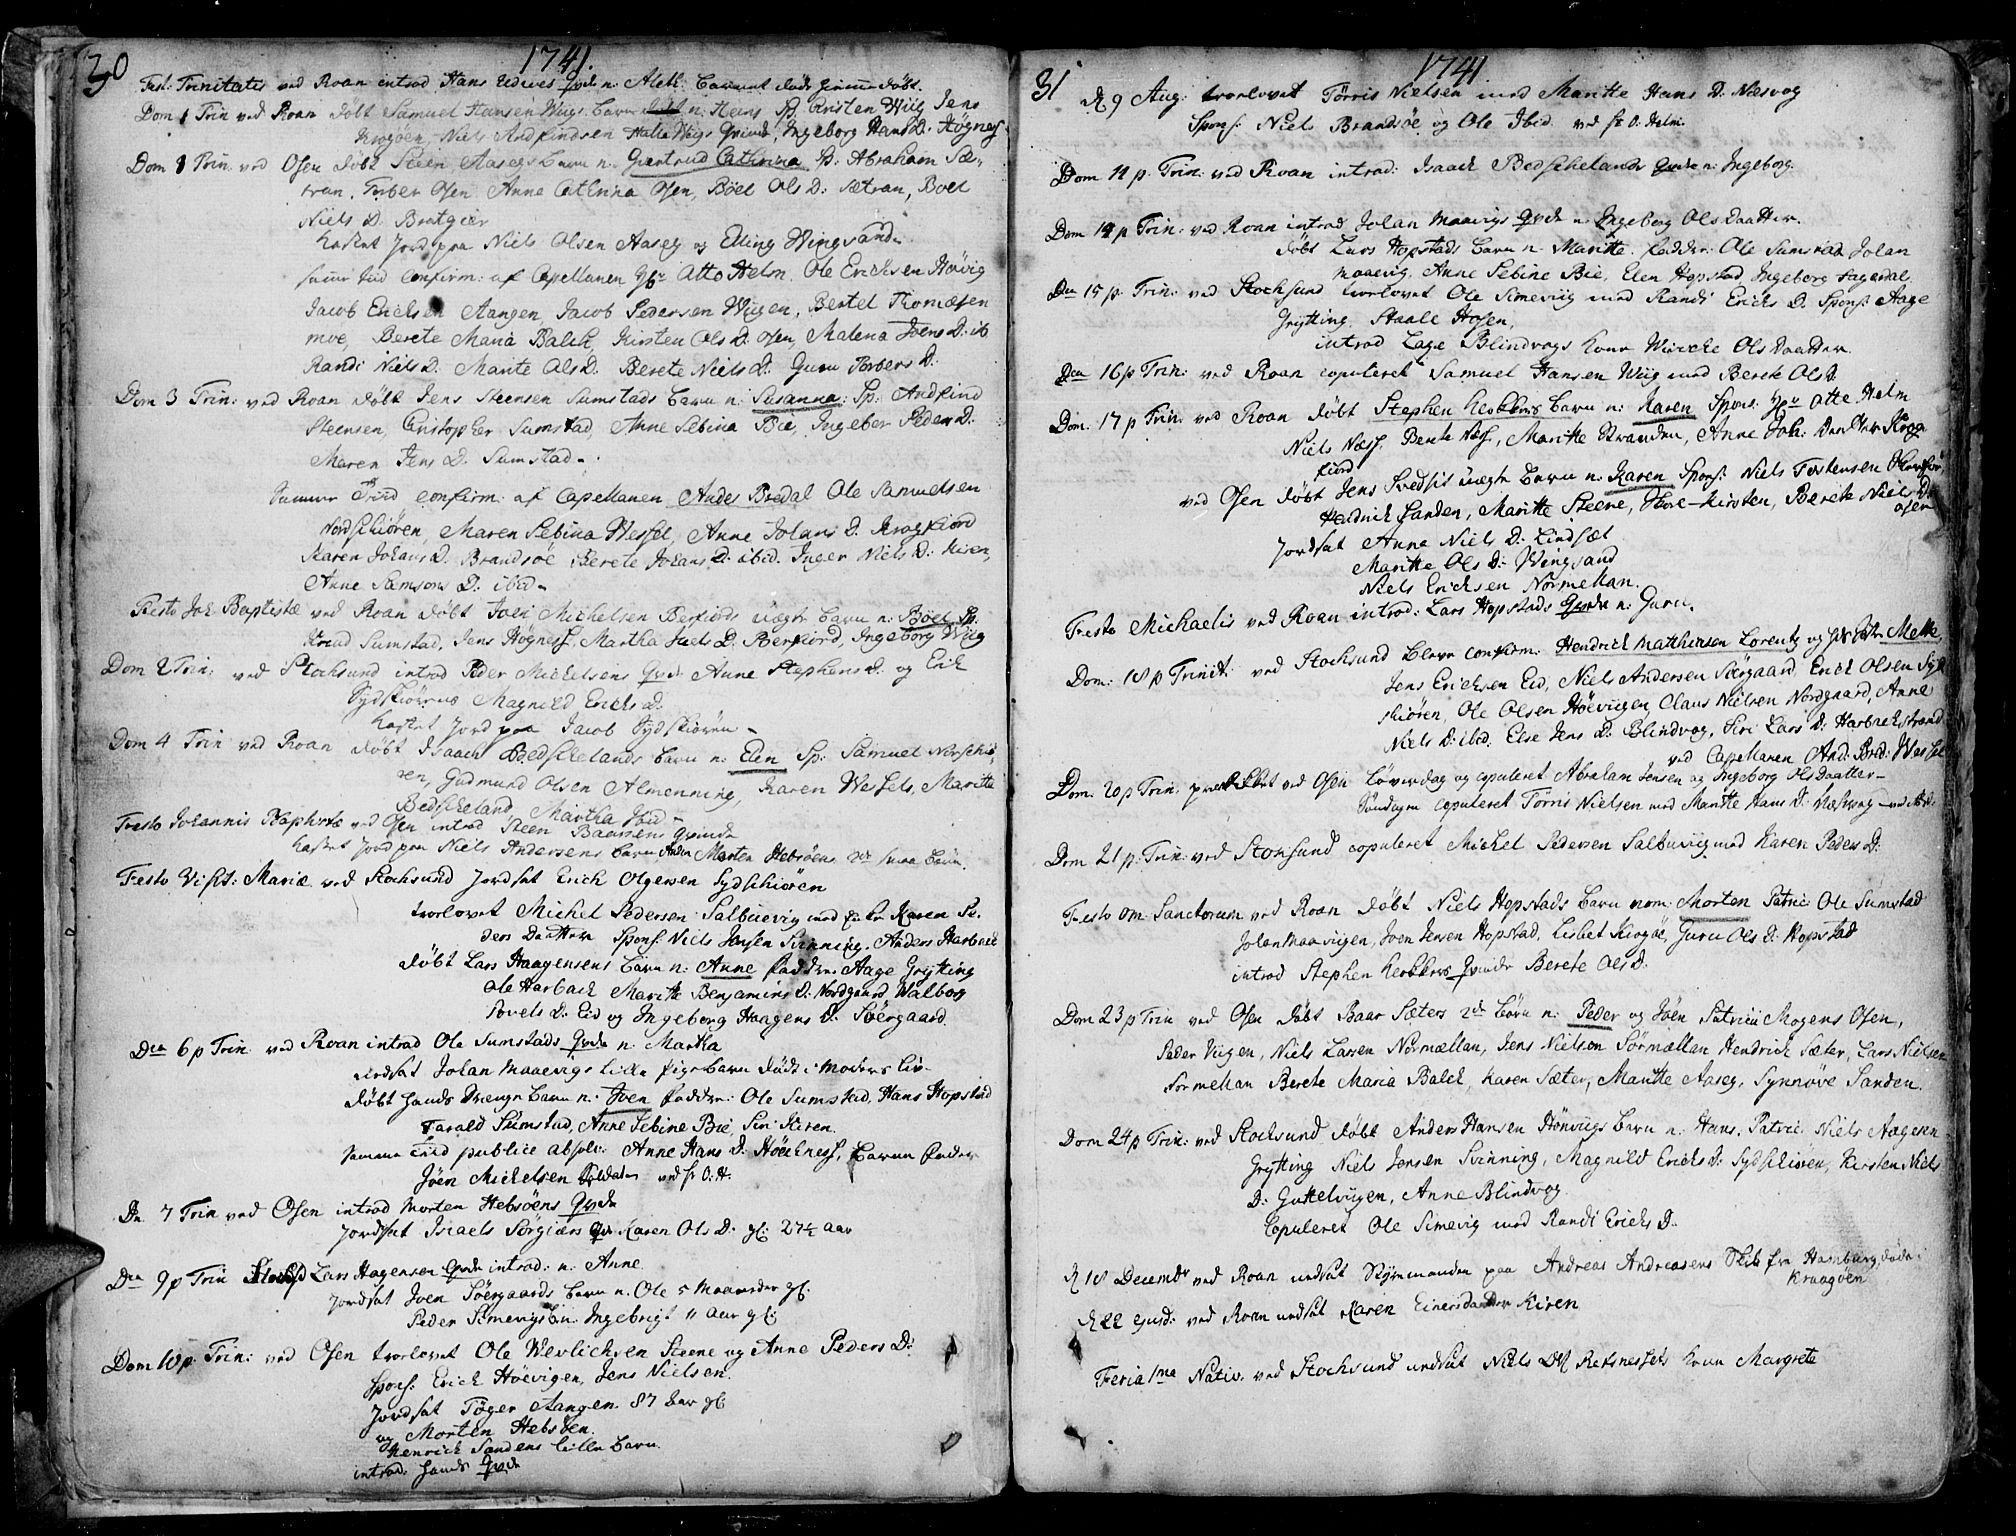 30
1741.
Fest: Trinitatis ved Roan introd Hans Qvde n: Aleth. Barnet døde hiemmedøbt.
Dom 1 Trin ved Roan døbt Samuel Hansen Wiigs Barn n: Hans Sp. Kirsten Wiig Jens
Kragøen Niels Andfindsen Malte Wiigs Qvinde, Ingeborg Hans D. Høgnes
Dom 1 Trin. ved Osen døbt Steen Aasegs Barn n: Giertrud Cathrina Sp: Abraham Sæ-
tran, Torber Osen Anne Cathrina Osen, Böel Ols D: Sætran, Böel
Niels D. Bratgier
Kastet Jord paa Niels Olsen Aaseg og Elling Wingsand.
samme tid Confirm: af Capellanen Hr Otto Helm. Ole Ericksen Høivig
Jacob Ericksen Aangen, Jacob Pedersen Wiigen, Bertel Thomæsen
moe, Berete Maria Balch, Kirsten Ols D. Osen, Malena Joens D: ib
Randi Niels D. Marite Ols D. Berete Niels D. Guru Torbers D.
Dom 3 Trin: ved Roan døbt Jens Steensen Sumstads Barn n: Susanna: Sp: Andfind
Steensen, Christopher Sumstad, Anne Sebina Bie, Ingeber Peders D:
Maren Jens D. Sumstad.
Samme Tiid confirm: af Capellanen Anders Bredal Ole Samuelsen
Nordskiören, Maren Sebina Wessel, Anne Johans D. Kragfiord
Karen Johans D. Brandsøe Berete Johans D. ibid. Inger Niels D: Kiren,
Anne Samsons D. ibid.
Festo Joh: Baptistæ ved Roan døbt Joen Michelsen Berfiords uægte Barn n: Böel Sp.
Knud Sumstad, Jens Høgness, Martha Niels D. Berfiord, Ingeborg Wiig
Dom 2 Trin: ved Stochsund introd Peder Michelsens Qvde Anne Stephens D. og Erich
Sydskiørens Magnild Erichs D.
Kastet Jord paa Jacob Sydskiören.
Dom 4 Trin ved Roan døbt Isaach Bedschelands Barn n: Elen Sp: Samuel Norschiö-
ren, Gudmund Olsen Almenning, Karen Wessels, Maritte
Bedscheland, Martha Ibid.
Festo Johannis Baphistæ ved Osen introd Steen Baarsens Qvinde
Kastet Jord paa Niels Andersens Barn Morten Hebsöens smaa Børn.
Festo Visit: Mariæ ved Stochsund Jordsat Erich Olgersen Sydschiören
trorlovet Michel Pedersen Salbuevig med Karen Pe-
ders Datter Spons: Niels Jensen Svinning, Anders Harbach
døbt Lars Haagensens Barn n: Anne Faddre: Aage Grytting
Ole Harbach Maritte Benjamins D. Nordgaard Walborg
Povels D. Eid og Ingeborg Haagens D. Söergaard.
Dca 6 p Trin ved Roan introd Ole Sumstads Qvde n. Martha
Jordsat Johan Maaevigs lille pige barn dødt i Moders liv.
døbt hands drenge Barn n: Joen Faddre: Ole Sumstad, Hans Hopstad
Tarald Sumstad, Anne Sebine Bie, Siri Kiren.
Samme Tiid publice absolv: Anne Hans D. Höichness, Barne Fader
Jöen Michelsen Soldat ved Hr O: H.
Da 7 Trin ved Osen introd Morten Hebsöens Qvde
Jordsat Israels Sörgiærs Karen Ols D: gl: 27½ aar
Dca 9 p Trin Stochsd Lars Hagensen Qvde introd: n: Anne.
Jordsat Joen Söergaards Barn n. Ole 5 Maaneder gl:
Peder Simevigs Barn: Ingebrigt 11 aar gl:
Dom 10 p: Trin: ved Osen trorlovet Ole Werlichsen Steene og Anne Peders D:
Spons: Erich Höevigen, Jens Nielsen.
Jordsat Töger Aangen 87 aar gl
og Morten Hebsöen.
Henrich Sandens lille Barn.
introd: hands Qvde
31
1741
d 9 Aug: trorlovet Törris Nielsen med Maritte Hans D. Næsvog
Spons: Niels Brandsöe og Ole Ibid. ved Hr O: Helm.
Dom 11 p. Trin: ved Roan introd: Isaach Bedschelands Qvde n: Ingeborg.
Dom 14 p Trin: ved Roan introd Johan Maaevigs Qvde n: Ingeborg Olsdaatter.
döbt Lars Hopstads Barn n. Maritte. Fadder: Ole Sumstad Johan
Maaevig, Anne Sebine Bie, Elen Hopstad Ingeborg Fagerdal
Dca 15 p. Trin: ved Stochsund trorlovet Ole Simeviig med Randi Erichs D. Spons: Aage
Grytting. Staale Hosen,
introd Lage Blindvogs Kone Wirche Olsdaatter.
Dca 16 p Trin: ved Roan copuleret Samuel Hansen Wiig med Berete Ols D.
Dom. 17 p Trin: ved Roan döbt Stephen Barn n: Karen Spons. Hr Otte Helm
Niels Næss. Berete Næss, Maritte Stranden, Anne Joh: Daatter Krog
fiord
ved Osen döbt Jens uægte Barn n. Karen Spons: Niels Torstensen
Hendrich Sanden, Maritte Steene, Store-Kirsten, Berete Niels D:
Osen
Jordsat Anne Niels D. Lindsæt
Maritte Ols D: Wingsand
Niels Ericksen Normellan.
Festo Michaelis ved Roan introd: Lars Hopstads Qvde n: Guru.
Dom: 18 p Trinit. ved Stochsund bleve confirm: Hendrich Matthiesen Lorentz og Mette,
Jens Ericksen Eid, Niels Andersen Söergaard, Erich Olsen Syd
skiören, Ole Olsen Höeviigen, Claus Nielsen Nordgaard, Anne
Niels D: ibid. Else Jens D. Blindvog, Siri Lars D. Harbachstrand
ved Capellanen And: Bred: Wessel
Dom: 20 p Trin. ved Osen Löverdag og copuleret Abraham Jensen og Ingeborg Olsdaatter.
Söndagen copuleret Törris Nielsen med Maritte Hans D. Næsvog
Dom 21 p: Trin: ved Stoxsund copuleret Michel Pedersen Salbuviig med Karen Peders D:
Festo Om: Sanctorum ved Roan döbt Niels Hopstads Barn nom: Morten Patrici Ole Sumstad
Johan Maavigen, Joen Jensen Hopstad, Lisbet Krogöe, Guru Ols D. Hopstad
introd Stephen Qvinde Berete Ols D.
Dom 23 p Trin ved Osen döbt Baar Sæters 2de börn n: Peder og Jöen Patricii Mogens Osen,
Peder Viigen, Niels Larsen Normællan, Jens Nielsen Sörmællan Hendrich Sæter, Lars Nielsen
Sormellan Berete Maria Balch, Karen Sæter, Maritte Aaseg, Synnöve Sanden.
Dom 24 p Trin: ved Stochsund döbt Anders Hansen Hönviigs barn n: Hans. Patric. Niels Aagesen
Grytting Niels Jensen Svinning, Magnild Erichs D. Sydschiören, Kirsten Niels
D: Guttelviigen, Anne Blindvog
Copuleret Ole Simevig med Randi Erichs D.
d 18 Decembr ved Roan nedsat Styrmanden paa Andreas Andreasens Skib fra Hamburg, döde i
Kraagöen
d 22 ved Roan nedsat Karen Einersdaatter Kiren
Feria 1ma Nativ. ved Stochsund nedsat Niels Retnessets Kone Margrete